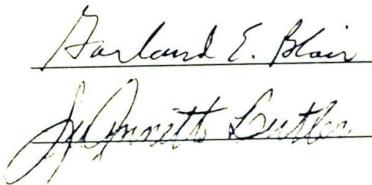 Garland E. Blair
Jo Annette Butler